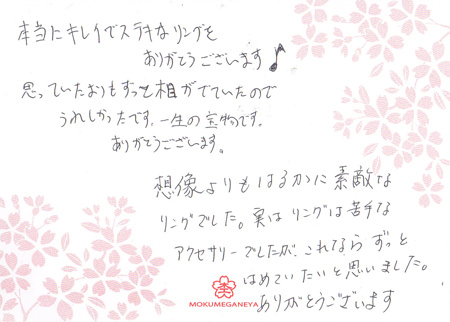 本当にキレイでステキなリングを
ありがとうございます♪
思っていたよりもずっと相がでていたので
うれしかったです。一生の宝物です。
ありがとうございます。
想像よりもはるかに素敵な
リングでした。実はリングは苦手な
アクセサリーでしたが、これなら ずっと
はめていたいと思いました。
ありがとうございます
MOKUMEGANEYA